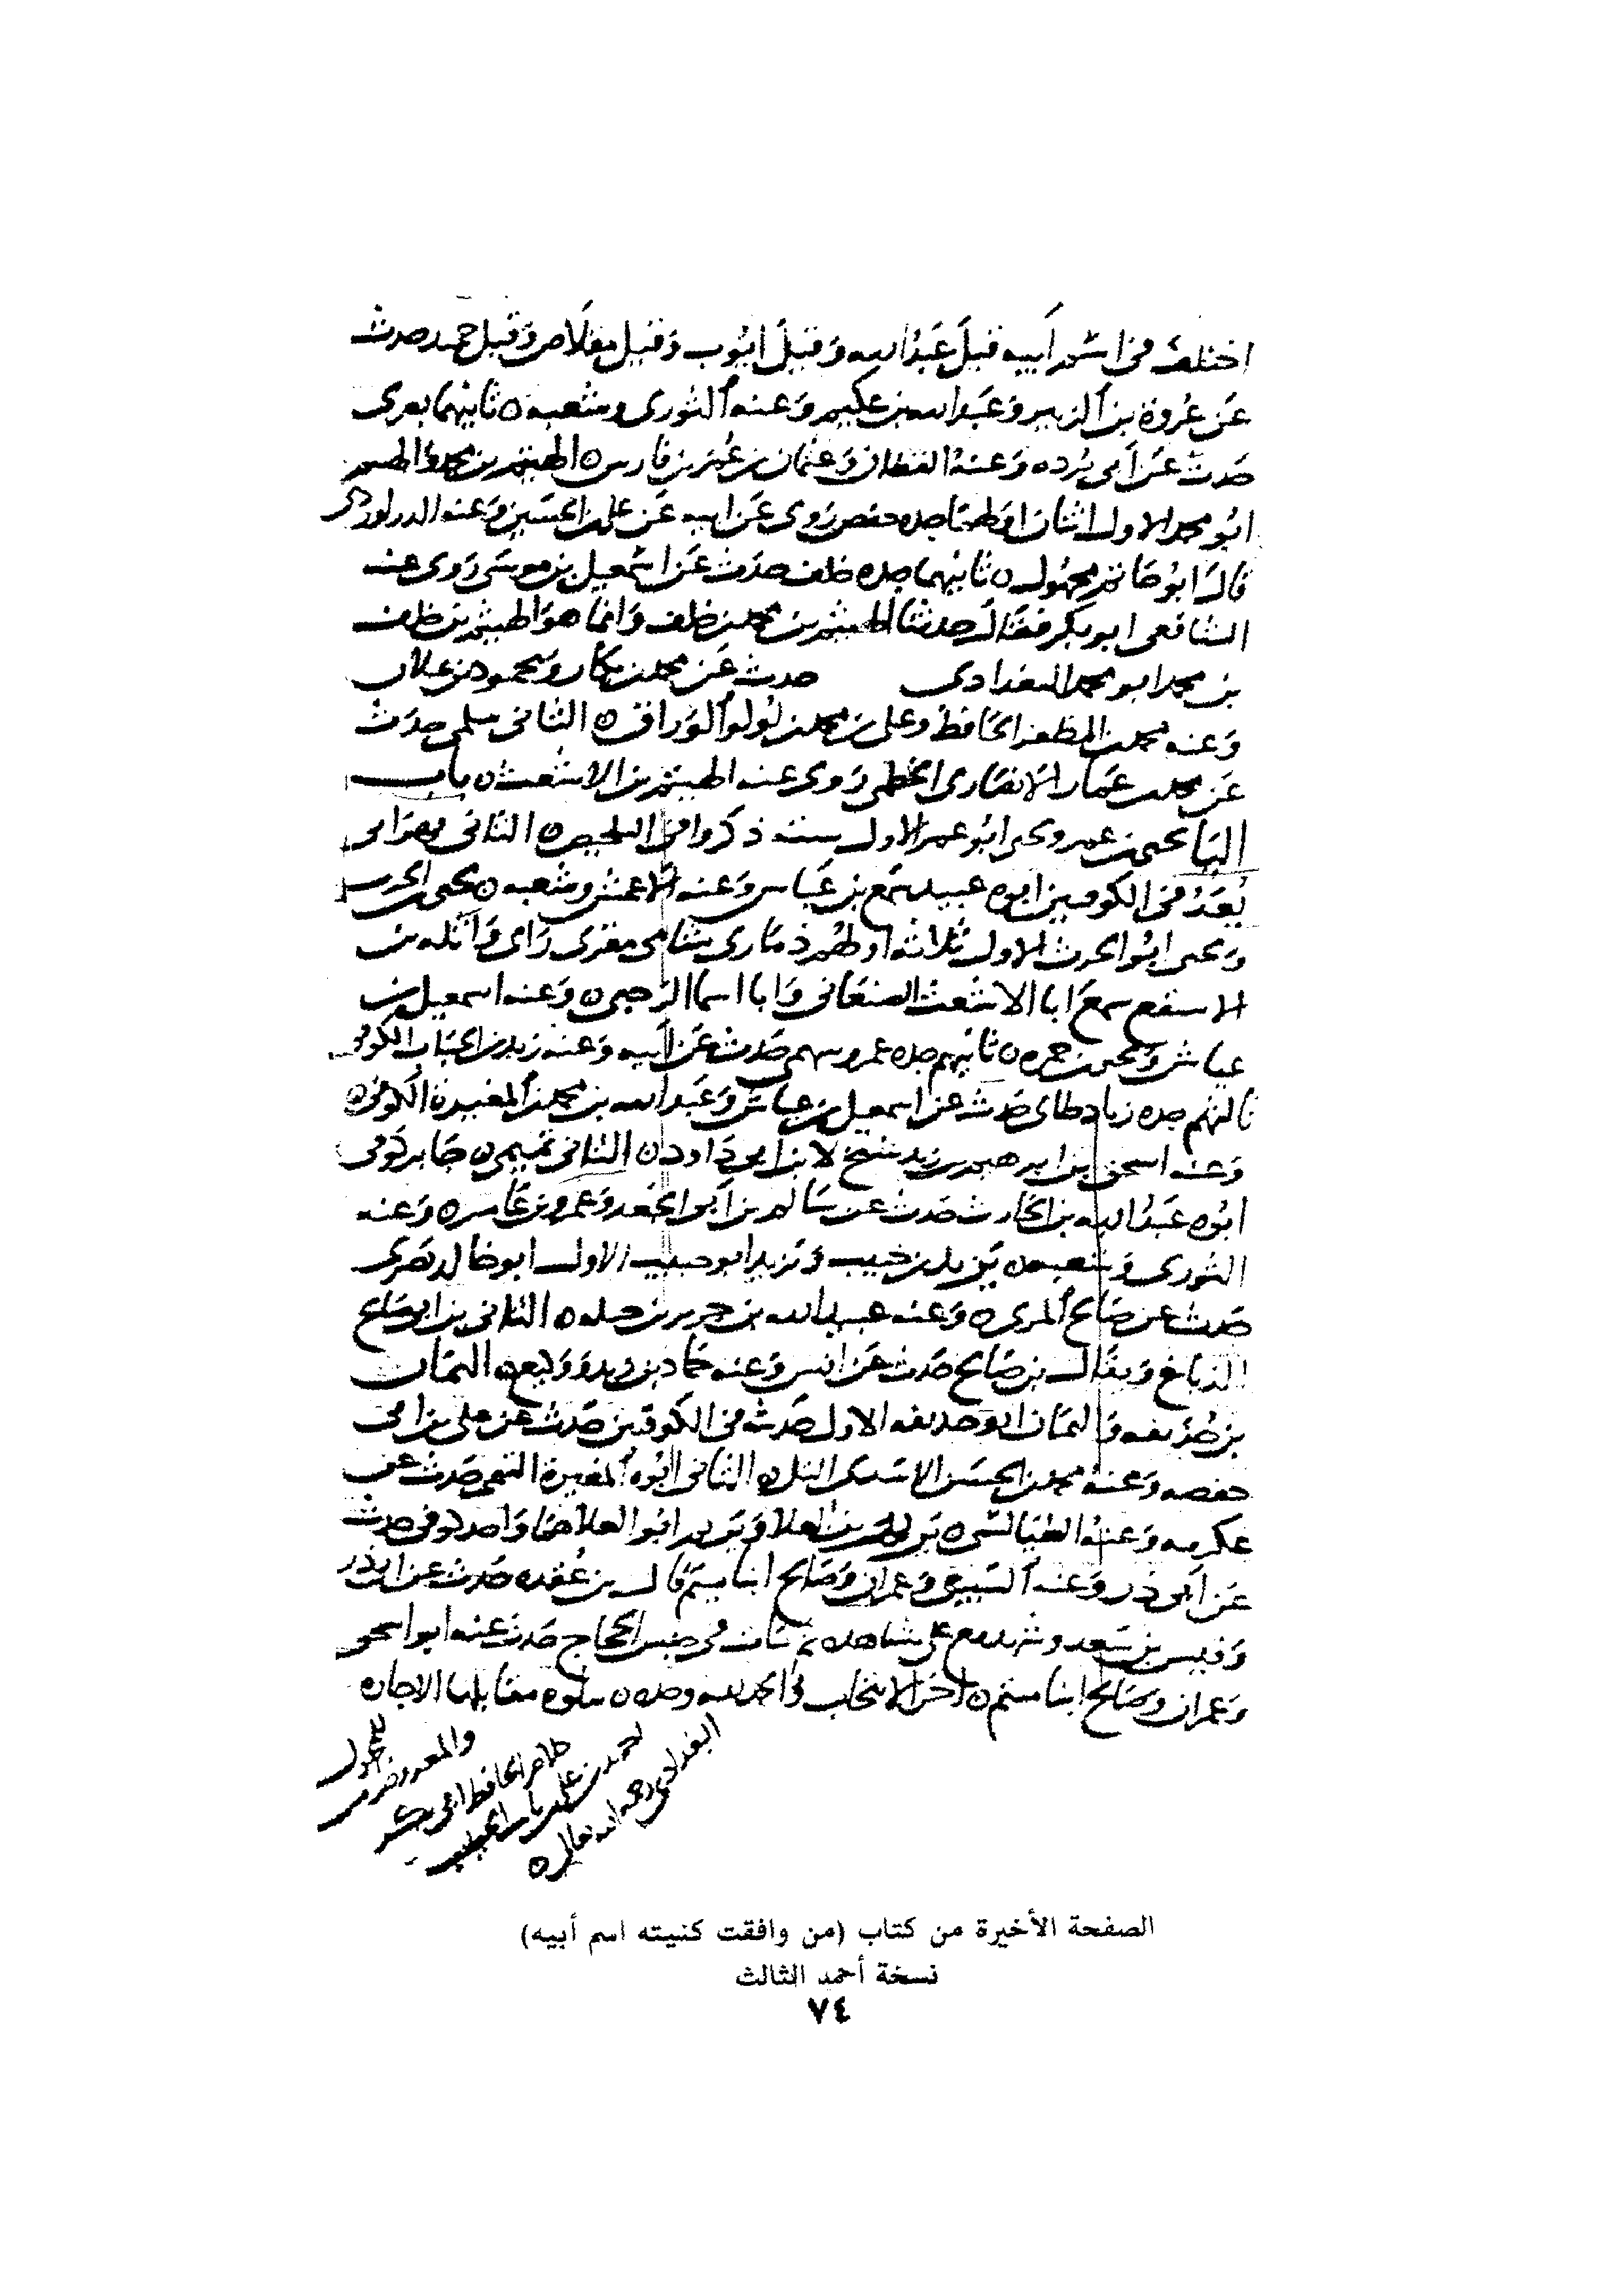 اختلف في اسم ابيه قيل عبد الله وقيل ايوب وقيل مقلاص وقيل حميد حدث
عن عروة بن الزبير وعبد الله بن عكيم وعنه الثوري وشعبه ه ثانيهما بصرى
حدث عن ابى برده وعنه القطان وعثمان بن عمر بن فارس ه الهيثم بن محمد والهيثم
ابو محمد الاول اثنان اولهما جده حفص روى عن ابيه عن على بن الحسين وعنه الدراوردى
قال ابو حاتم مجهول ه ثانيهما جده خلف حدث عن اسمعيل بن موسى روى عنه
الشافعى ابو بكر فقال حدثنا الهيثم بن محمد بن خلف وانما هو الهيثم بن خلف
بن محمد ابو محمد البغدادى حدث عن محمد بن بكار ومحمود بن غيلان
وعنه محمد بن المظفر الحافظ وعلى بن محمد بن لولو الوراق ه الثانى سلمى حدث
عن محمد بن عمار الانصارى الخطمى روى عنه الهيثم بن الاشعث ه باب
اليا يحيى بن عمر ويحيى ابو عمر الاول ستة ذكروا فى التلخيص ه الثانى بهرانى
يعد فى الكوفيين ابوه عبيد سمع بن عباس وعنه الاعمش وشعبه ه يحيى بن الحرث
ويحيى ابو الحرث الاول ثلاثه اولهم ذمارى شامى مقرى راى واثله بن
الاسقع سمع ابا الاشعث الصنعانى وابا اسما الرحبى ه وعنه اسمعيل بن
عياش ويحيى بن حمزه ه ثانيهم جده عمرو سهمى حدث عن ابيه وعنه زيد بن الحباب الكوفى
ثالثهم جده زياد طاى حدث عن اسمعيل بن عياش وعبد الله بن محمد بن المغيرة الكوفى ه
وعنه اسحق بن ابرهيم بن زيد شيخ لابن ابى داود ه الثانى تميمى ه جابر كوفى
ابوه عبد الله بن الحارث حدث عن سالم بن ابى الجعد وعمرو بن عامر ه وعنه
الثورى وشعبه ه يزيد بن حبيب ويزيد ابو حبيب الاول ابو خالد بصرى
حدث عن صالح المرى ه وعنه عبيد الله بن جرير بن جبله ه الثانى بن ابى صالح
الدباغ ويقال بن صالح حدث عن انس وعنه حماد بن زيد ووكيع ه اليمان
بن حذيفه واليمان ابو حذيفه الاول حدث فى الكوفيين حدث عن على بن ابى
حفصه وعنه محمد بن الحسن الاسدى التل ه الثانى ابوه المغيرة التيمى حدث عن
عكرمه وعنه الطيالسى ه يزيد بن العلا ويزيد ابو العلا هما واحد كوفى حدث
عن ابى ذر وعنه السبيعى وعمران وصالح ابنا ميثم قال بن عقده حدث عن ابى ذر
وقيس بن سعد وشهد مع على مشاهده ثم مات فى حبس الحجاج حدث عنه ابو اسحق
وعمران وصالح ابنا ميثم ه اخر الانتخاب والحمد لله وحده ه يتلوه مقابلها الاجازه
للمجهول
والمعدوم
للامام الحافظ ابى بكر
احمد بن على بن ثابت الخطيب
البغدادى رحمه الله تعالى ه
الصفحة الأخيرة من كتاب (من وافقت كنيته اسم أبيه)
نسخة أحمد الثالث
٧٤